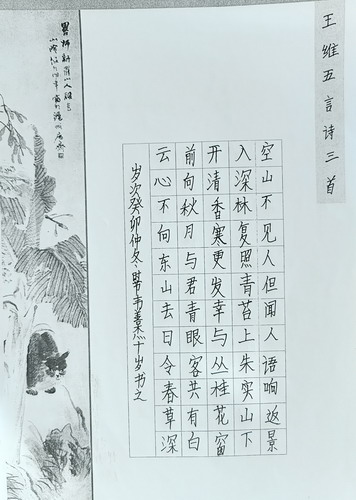 王维五言诗三首
空山不见人但闻人语响返景
入深林复照青苔上朱实山下
开清香寒更发幸与丛桂花窗
前向秋月与君青眼客共有白
云心不向东山去日令春草深
岁次癸卯仲冬十岁书之